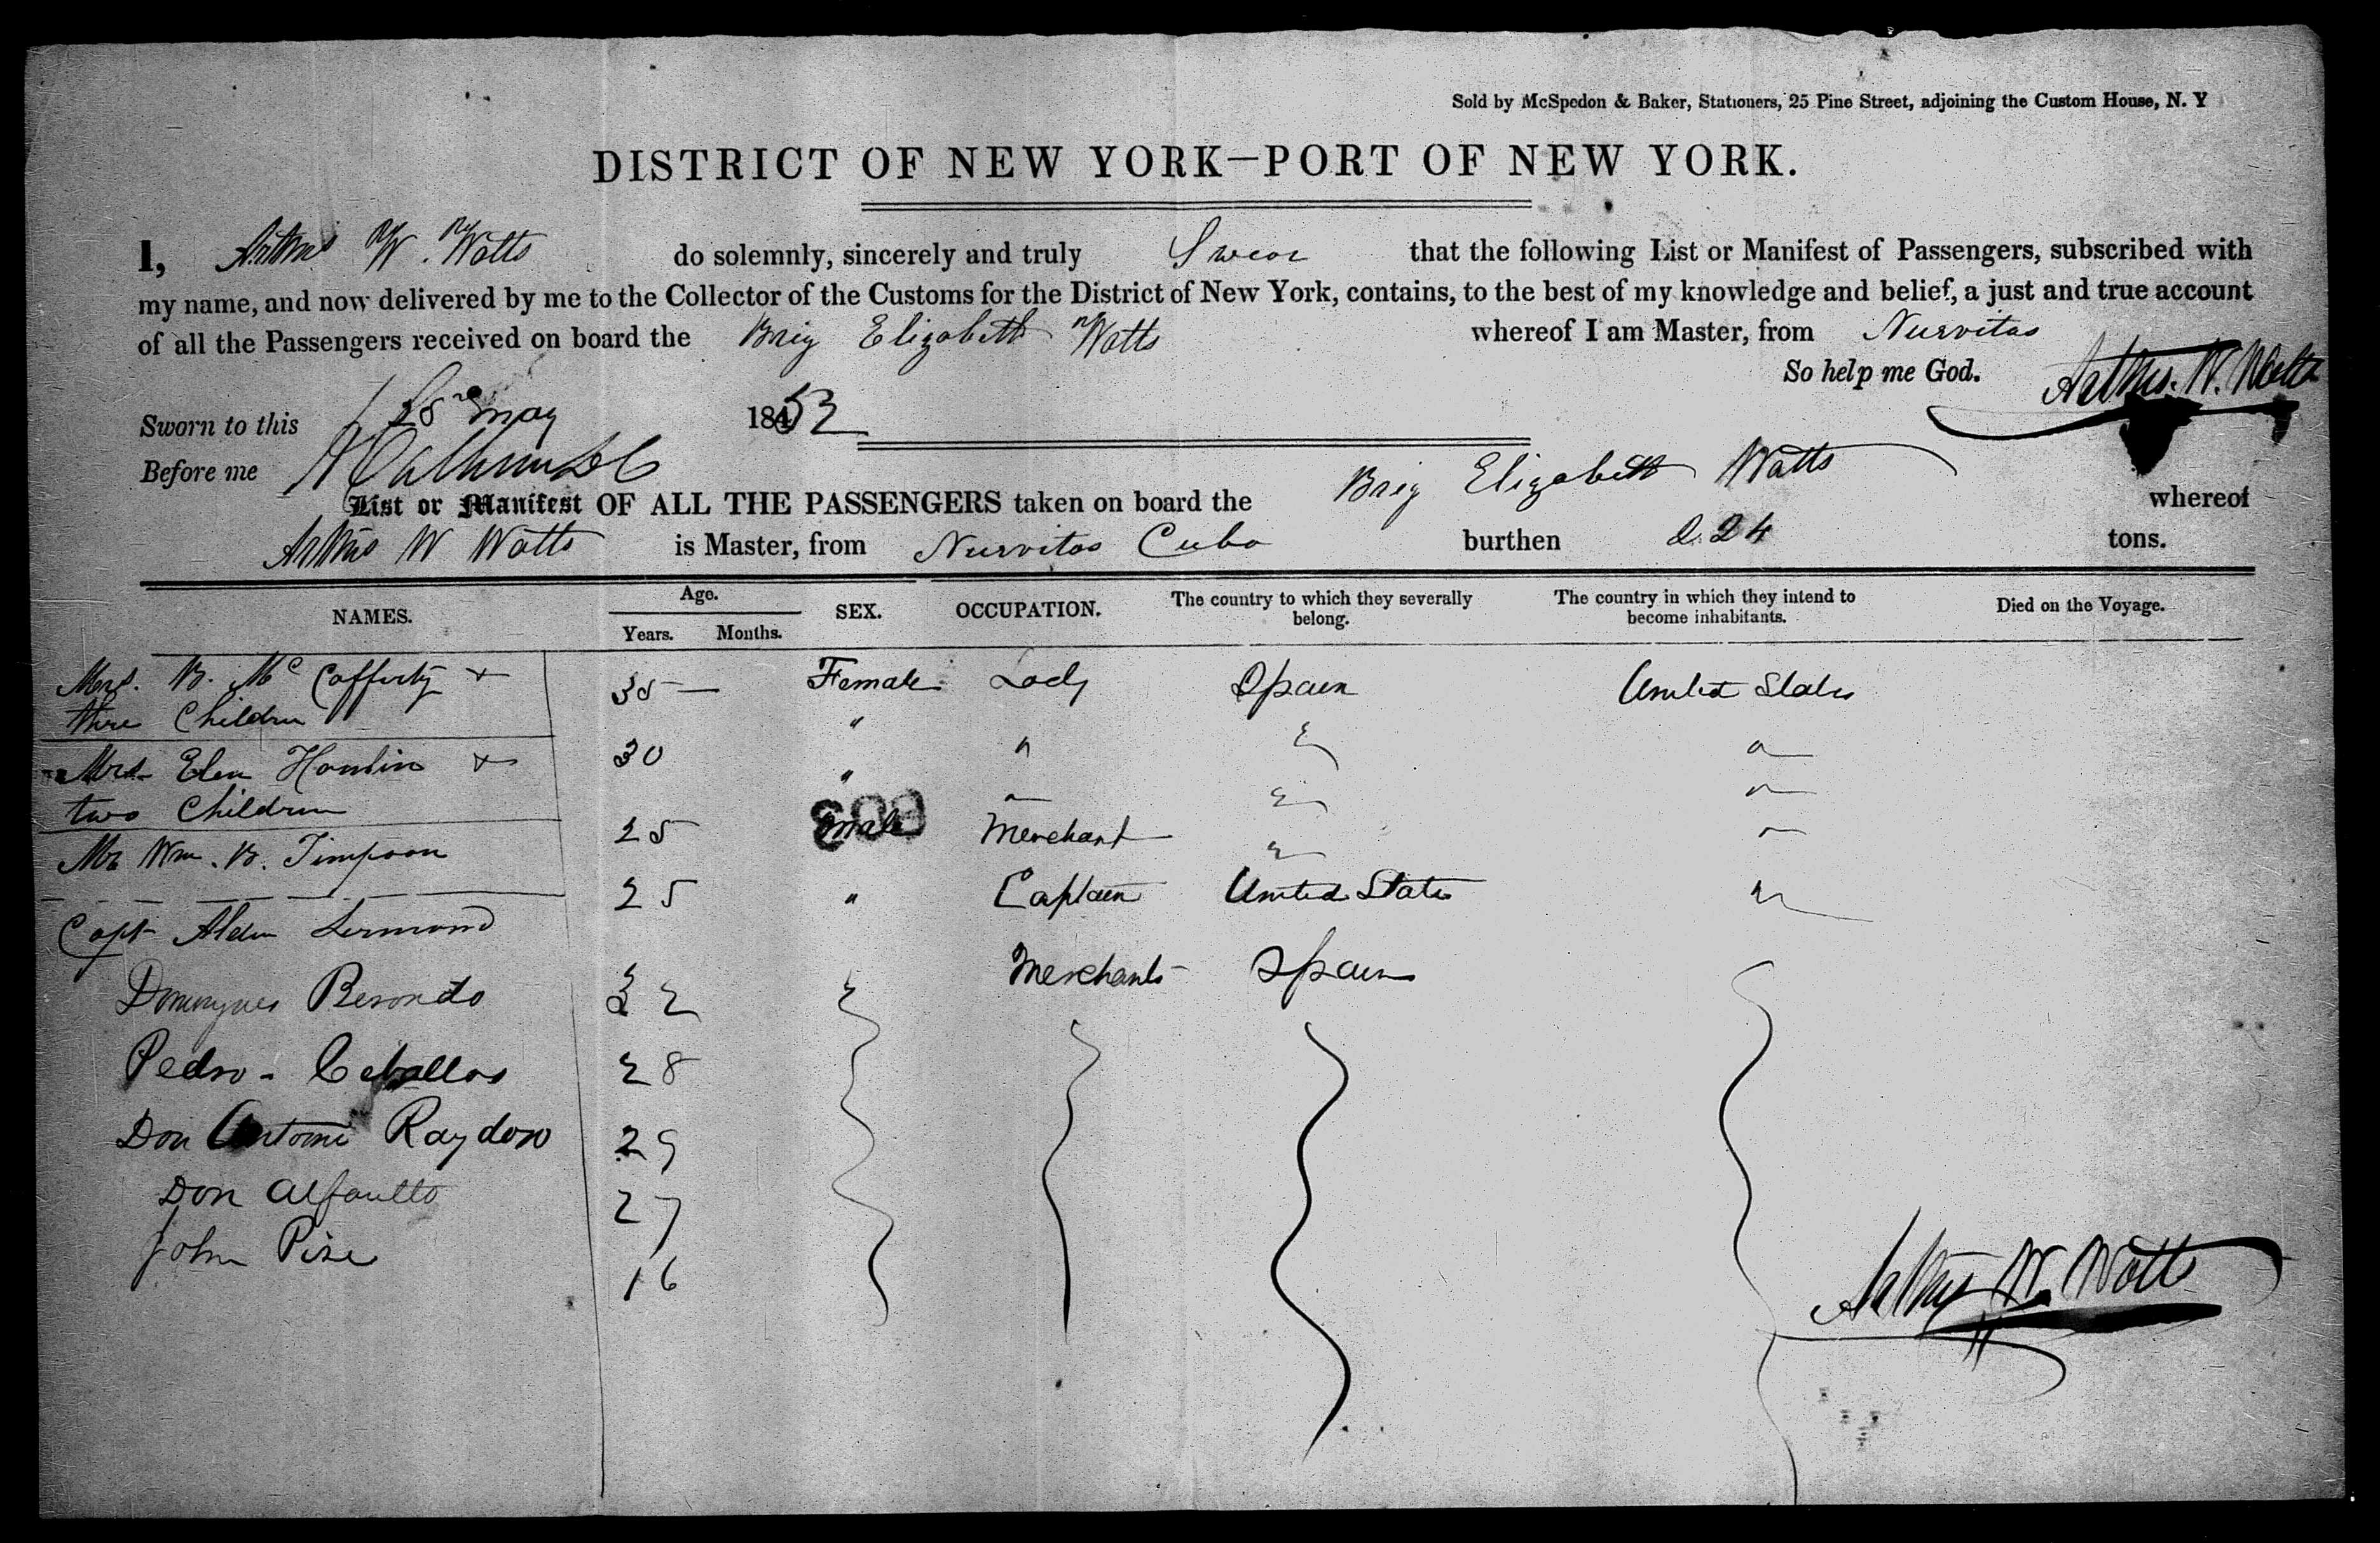 Sold by McSpedon & Baker, Stationers, 25 Pine Street, adjoining the Custom House, N. Y
DISTRICT OF NEW YORK—PORT OF NEW YORK.
I, Arthur W. Watts do solemnly, sincerely and truly Swear that the following List or Manifest of Passengers, subscribed with
my name, and now delivered by me to the Collector of the Customs for the District of New York, contains, to the best of my knowledge and belief, a just and true account
of all the Passengers received on board the Brig Elizabeth Watts whereof I am Master, from Nuevitas
So help me God. Arthur. W. Watts
Sworn to this 28 May 1852
Before me
List or Manifest OF ALL THE PASSENGERS taken on board the Brig Elizabeth Watts whereof
Arthur W Watts is Master, from Nuevitas Cuba burthen 224 tons.
NAMES. Age. Years. Months. SEX. OCCUPATION. The country to which they severally belong. The country in which they intend to become inhabitants. Died on the Voyage.
Mrs. B. Mc Cafferty + 35 — Female Lady Spain United States
three Children "
Mrs. Elen Hamlin + 30 "
two Children
Mr Wm. B. Timpson 25 Male Merchant
Capt Alden Lermond 25 " Captain United States
Berondo 32 Merchants Spain
Pedro - Ceballos 28
Don Antoni Raydon 29
Don 27
John Pise 16
Arthur W. Watts